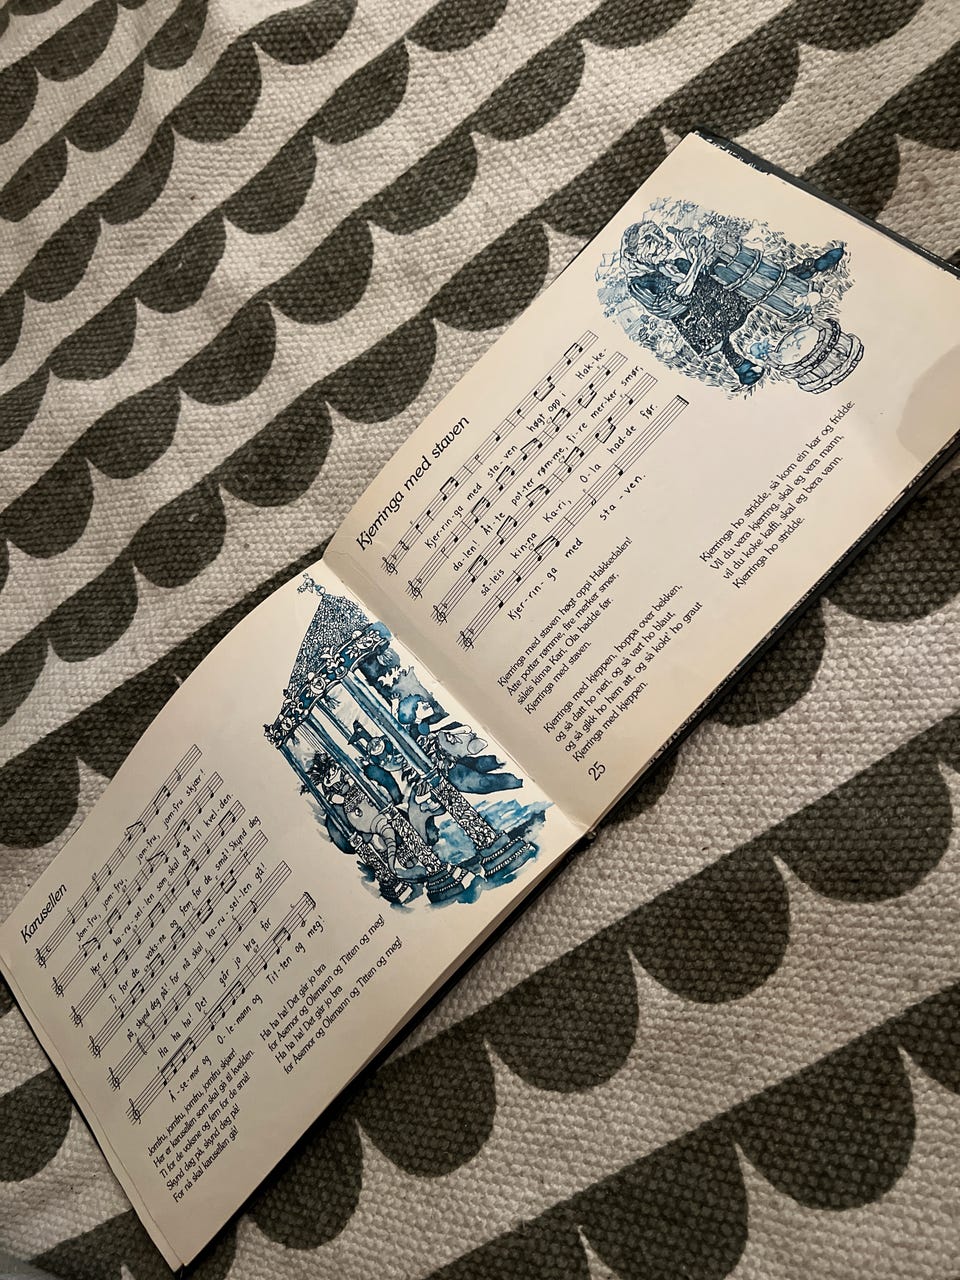 Karusellen
Jom-fru, jom-fru, jom-fru, jom-fru skjær!
Her er ka-ru-sel-len som skal gå til kvel-den.
Ti for de voks-ne og fem for de små! Skynd deg
på, skynd deg på! For nå skal ka-ru-sel-len gå!
Ha ha ha! Det går jo bra for
Å-se-mor og O-le-mann og Tit-ten og meg!
Jomfru, jomfru, jomfru, jomfru skjær!
Her er karusellen som skal gå til kvelden.
Ti for de voksne og fem for de små!
Skynd deg på, skynd deg på!
For nå skal karusellen gå!
Ha ha ha! Det går jo bra
for Åsemor og Olemann og Titten og meg!
Ha ha ha! Det går jo bra
for Åsemor og Olemann og Titten og meg!
Kjerringa med staven
Kjer-rin-ga med sta-ven høgt opp i Hak-ke-
da-len! Åt-te pot-ter røm-me, fi-re mer-ker smør,
så-leis kin-na Ka-ri, O-la had-de før.
Kjer-rin-ga med sta-ven.
Kjerringa med staven høgt opp i Hakkedalen!
Åtte potter rømme, fire merker smør,
såleis kinna Kari, Ola hadde før.
Kjerringa med staven.
Kjerringa med kjeppen, hoppa over bekken,
og så datt ho neri, og så vart ho blaut,
og så gikk ho hem att, og så kokt' ho graut
Kjerringa med kjeppen.
Kjerringa ho stridde, så kom ein kar og fridde:
Vil du vera kjerring, skal eg vera mann,
vil du koke kaffi, skal eg bera vann.
Kjerringa ho stridde.
25